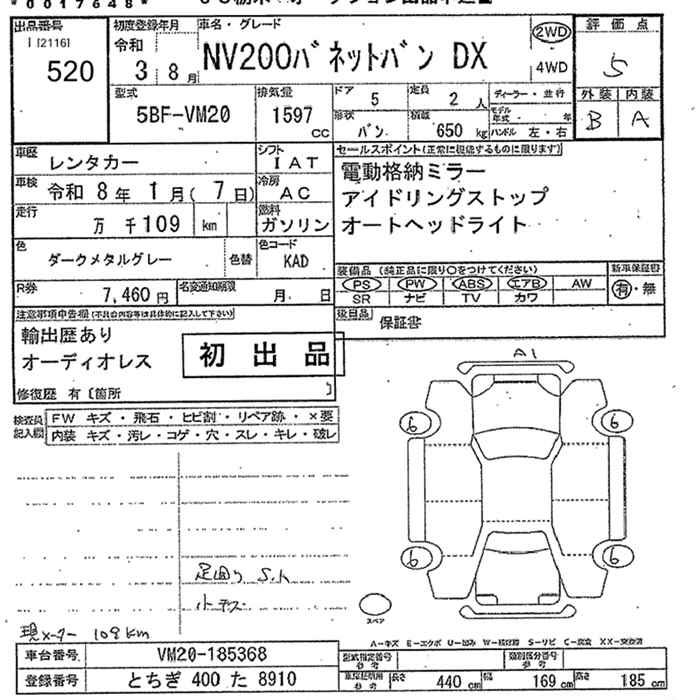 *0017648*
出品番号
[2116]
520
初度登録年月
令和
3年 8月
車名・グレード
NV200バネットバン DX
2WD
4WD
評価点
5
外装 内装
B A
型式
5BF-VM20
排気量
1597
cc
ドア
5
定員
2人
形状
バン
積載
650 kg
ディーラー・並行
モデル年式 ・ 年
ハンドル 左・右
車歴
レンタカー
シフト
IAT
車検
令和 8年 1月(7日)
冷房
AC
走行
万 千109 km
燃料
ガソリン
セールスポイント(正常に機能するものに限ります)
電動格納ミラー
アイドリングストップ
オートヘッドライト
色
ダークメタルグレー
色替
色コード
KAD
R券
7,460円
名変通知期限
月 日
装備品(純正品に限り○をつけてください)
PS PW ABS エアB AW
SR ナビ TV カワ
新車保証書
有・無
後日品
保証書
注意事項申告欄(不具合内容等は具体的に記入して下さい)
輸出歴あり
オーディオレス
初出品
修復歴 有〔箇所 〕
検査員記入欄
FW キズ・飛石・ヒビ割・リペア跡・×要
内装 キズ・汚レ・コゲ・穴・スレ・キレ・破レ
A1
6
6
6
6
足回り S.ト
スペア
現メーター 109km
A-キズ E-エクボ U-凹み W-補修跡 S-サビ C-腐食 XX-交換済
車台番号
VM20-185368
型式指定番号
参考
類別区分番号
参考
登録番号
とちぎ 400 た 8910
車検証記載
参考
長さ
440 cm
幅
169 cm
高さ
185 cm